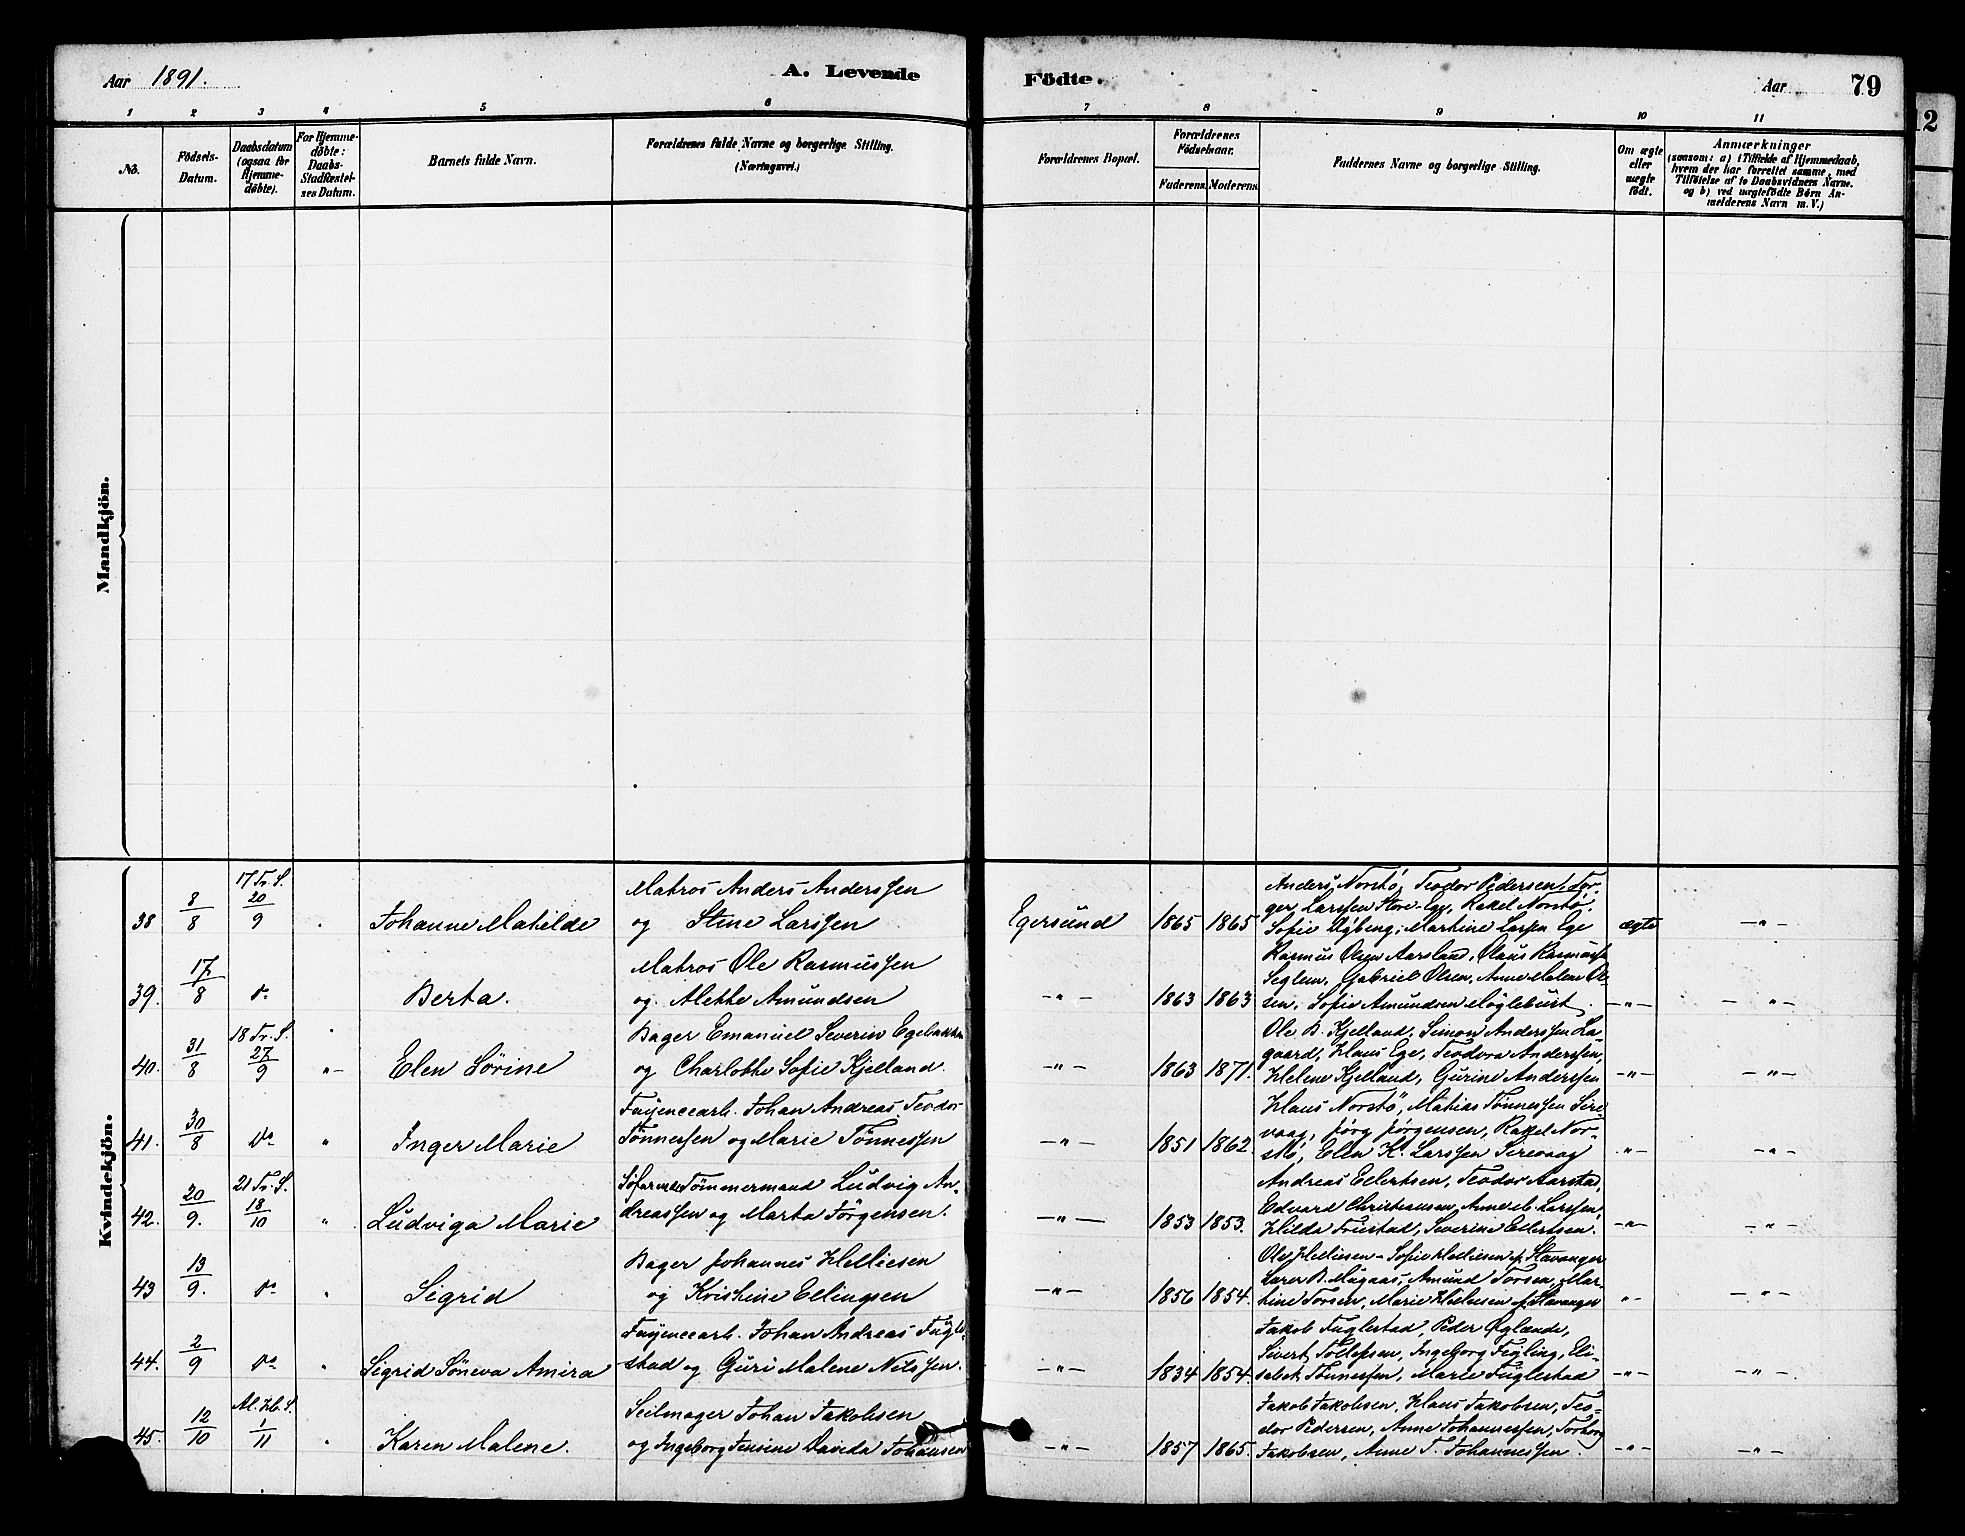 Aar 1891.
A. Levende
Födte.
Aar
79
12
1 2 3 4 5 6 7 8 9 10 11
No.
Födsels-
Datum.
Daabsdatum
(ogsaa for
Hjemme-
døbte).
For Hjemme-
døbte:
Daabs-
Stadfæstel-
ses Datum.
Barnets fulde Navn.
Forældrenes fulde Navne og borgerlige Stilling.
(Næringsvei.)
Forældrenes Bopæl.
Forældrenes
Födselsaar.
Faderens. Moderens.
Faddernes Navne og borgerlige Stilling.
Om ægte
eller
uægte
født.
Anmærkninger
(saasom: a) i Tilfælde af Hjemmedaab,
hvem der har forrettet samme, med
Tilføielse af to Daabsvidners Navne.
og b) ved uægtefødte Børn An-
melderens Navn m. V.)
Mandkjön.
Kvindekjön.
38 8/8 17 Tr. S. 20/9 Johanne Matilde
Matros Anders Anderssen
og Stine Larssen
Egersund 1865 1865
Anders Norstø, Teodor Pedersen, Tor-
ger Larssen Store-Ege, Rakel Norstø.
Sofie Nyberg, Martine Larsen Ege
ægte -„-
39. 17/8 do Berta.
Matros Ole Rasmussen
og Alette Amundsen
-„- 1863 1863
Rasmus Olsen Aarsland, Olaus Rasmussen
Seglem, Gabriel Olsen, Anne Malene Ol-
sen, Sofie Amundsen Møgleburst.
-„- -„-
40. 31/8 18 Tr. S. 27/9 -„- Elen Sørine
Bager Emanuel Severin Egebakken
og Charlotte Sofie Kjelland.
-„- 1863 1871.
Ole B. Kjelland, Simon Anderssen La-
gaard, Klaus Ege, Teodora Anderssen,
Helene Kjelland, Gurine Anderssen
-„- -„-
41. 30/8 do „ Inger Marie
Fayencearb. Johan Andreas Teodor
Tønnessen og Marie Tønnessen
-„- 1851 1862.
Klaus Norstø, Mathias Tønnessen Sire-
vaag, Jørg Jørgensen, Rakel Nor-
stø, Elen K. Larssen Sirevaag
-„- -„-
42. 20/9. 21 Tr. S. 18/10 „ Ludviga Marie
Tømmermand Ludvig An-
dreassen og Marta Jørgensen.
-„- 1853 1853.
Andreas Ellertsen, Teodor Aarstad,
Edvard Christiansen, Anne M. Larssen,
Hilda Friestad, Severine Ellertsen.
-„- -„-
43 13/9. do „ Sigrid
Bager Johannes Helliesen
og Kristine Ellingsen
-„- 1856 1854.
Ole Helliesen - Sofie Helliesen p. Stavanger
Larer B. Mugaas, Amund Torsen, Mar-
tine Torsen, Marie Helliesen p. Stavanger
-„- -„-
44. 2/9 do „ Sigrid Søneva Amira
Fayencearb. Johan Andreas Fugle-
stad og Guri Malene Nilssen.
-„- 1834 1854.
Jakob Fuglestad, Peder Øglænde,
Sivert Tollefsen, Ingeborg Figling, Eli-
sabet Tønnessen, Marie Fuglestad
-„- -„-
45. 12/10 Al. Hl. S. 1/11 „ Karen Malene.
Seilmager Johan Jakobsen
og Ingeborg Jensine Davida Johansen
-„- 1857 1865.
Jakob Jakobsen, Klaus Jakobsen, Teo-
dor Pedersen, Anne Johannessen, Torborg
Jakobsen, Anne T. Johannessen.
-„- -„-